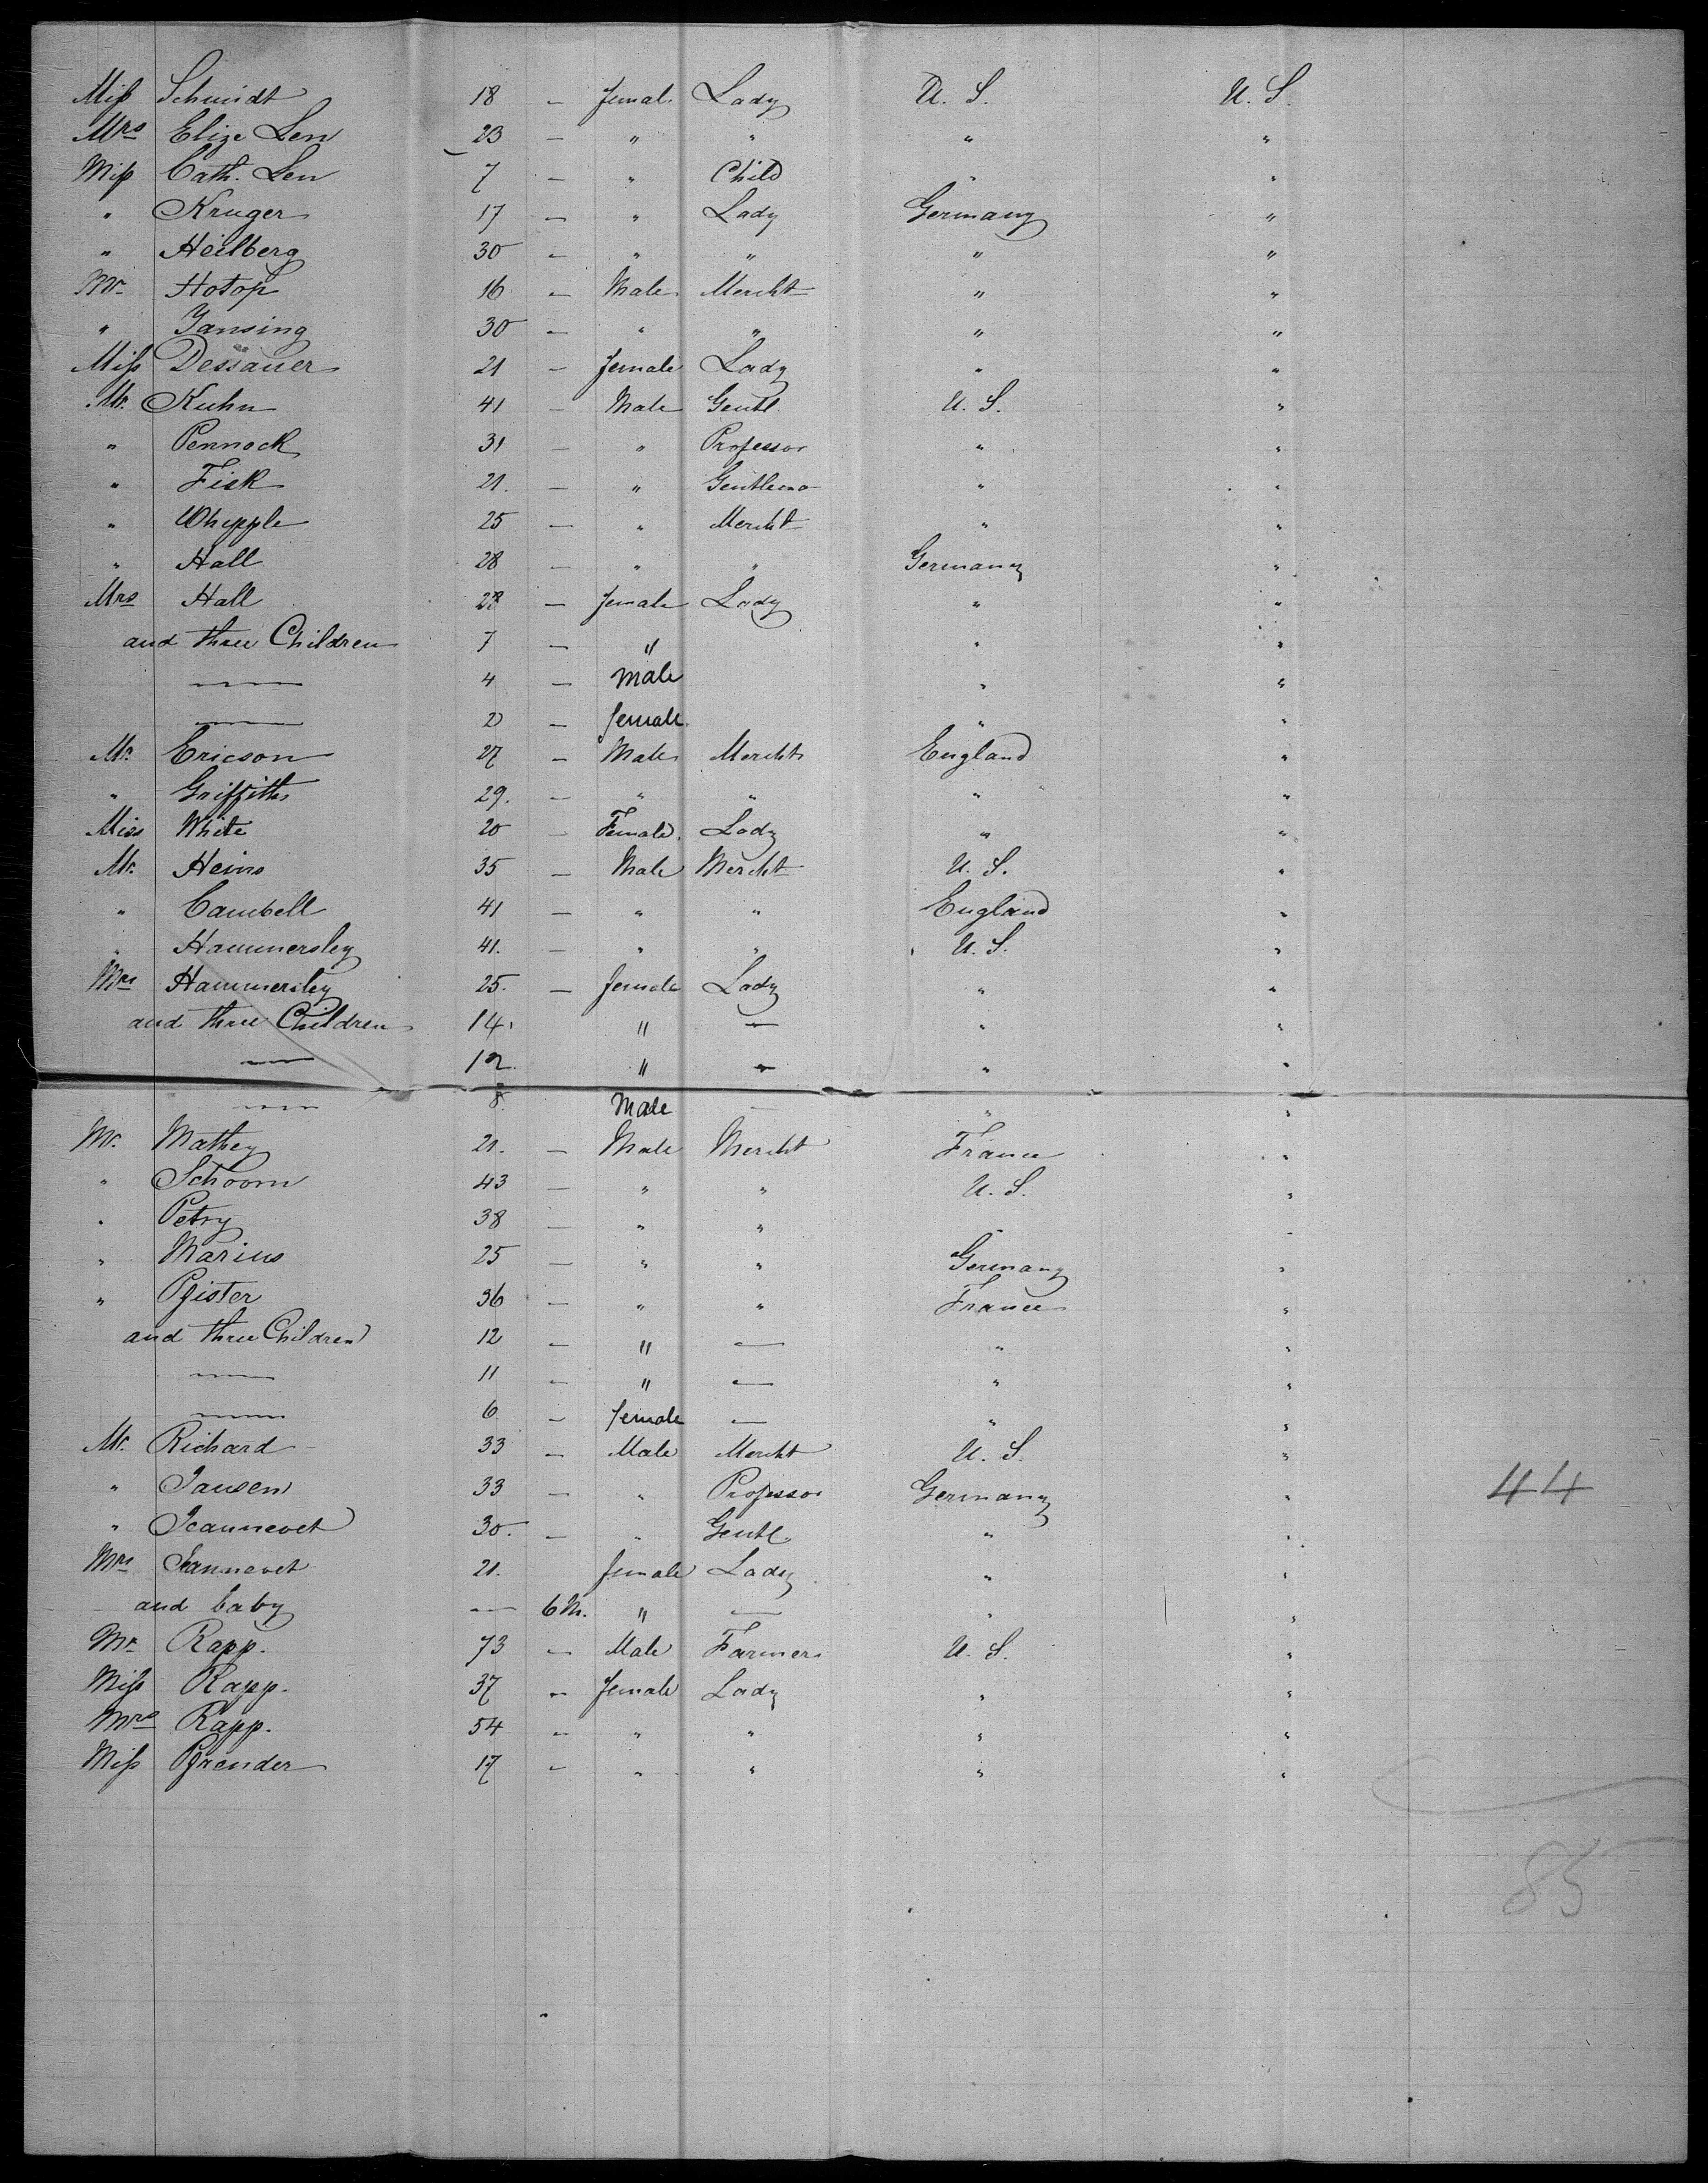 Miss Schmidt 18 – femal. Lady U. S. U. S.
Mrs Elize Len 23 – " " " "
Miss Cath. Len 7 – " Child " "
" Kruger 17 – " Lady Germany "
" Heilberg 30 – " " " "
Mr Hotop 16 – Male Mercht " "
" Jansing 30 – " " " "
Miss Dessauer 21 – female Lady " "
Mr. Kuhn 41 – Male Gentl. U. S. "
" Pennock 31 – " Professor " "
" Fisk 21. – " Gentlema " "
" Whipple 25 – " Mercht " "
" Hall 28 – " " Germany "
Mrs Hall 28 – female Lady " "
and three Children 7 – " " "
–––– 4 – male " "
–––– 2 – female " "
Mr. Ericson 27 – Male Mercht England "
" Griffiths 29. – " " " "
Miss White 20 – Female. Lady " "
Mr. Heins 35 – Male Mercht U. S. "
" Cambell 41 – " " England "
" Hammersley 41. – " " U. S. "
Mrs Hammersley 25. – female Lady " "
and three Children 14. " – " "
–––– 12. " – " "
–––– 8. Male – " "
Mr. Mathey 21. – Male Mercht France "
" Schoorn 43 – " " U. S. "
" Petry 38 – " " " "
" Marius 25 – " " Germany "
" Pfister 36 – " " France "
and three Children 12 – " – " "
–––– 11 – " – " "
–––– 6 – female – " "
Mr. Richard 33 – Male Mercht U. S. "
" Jansen 33 – " Professor Germany " 44
" Jeannevet 30. – " Gentl. " "
Mrs Jeannevet 21. female Lady " "
and baby – 6 M. " – " "
Mr Rapp. 73 – Male Farmer U. S. "
Miss Rapp. 37 – female Lady " "
Mrs Rapp. 54 – " " " "
Miss Pfrender 17 – " " " "
85